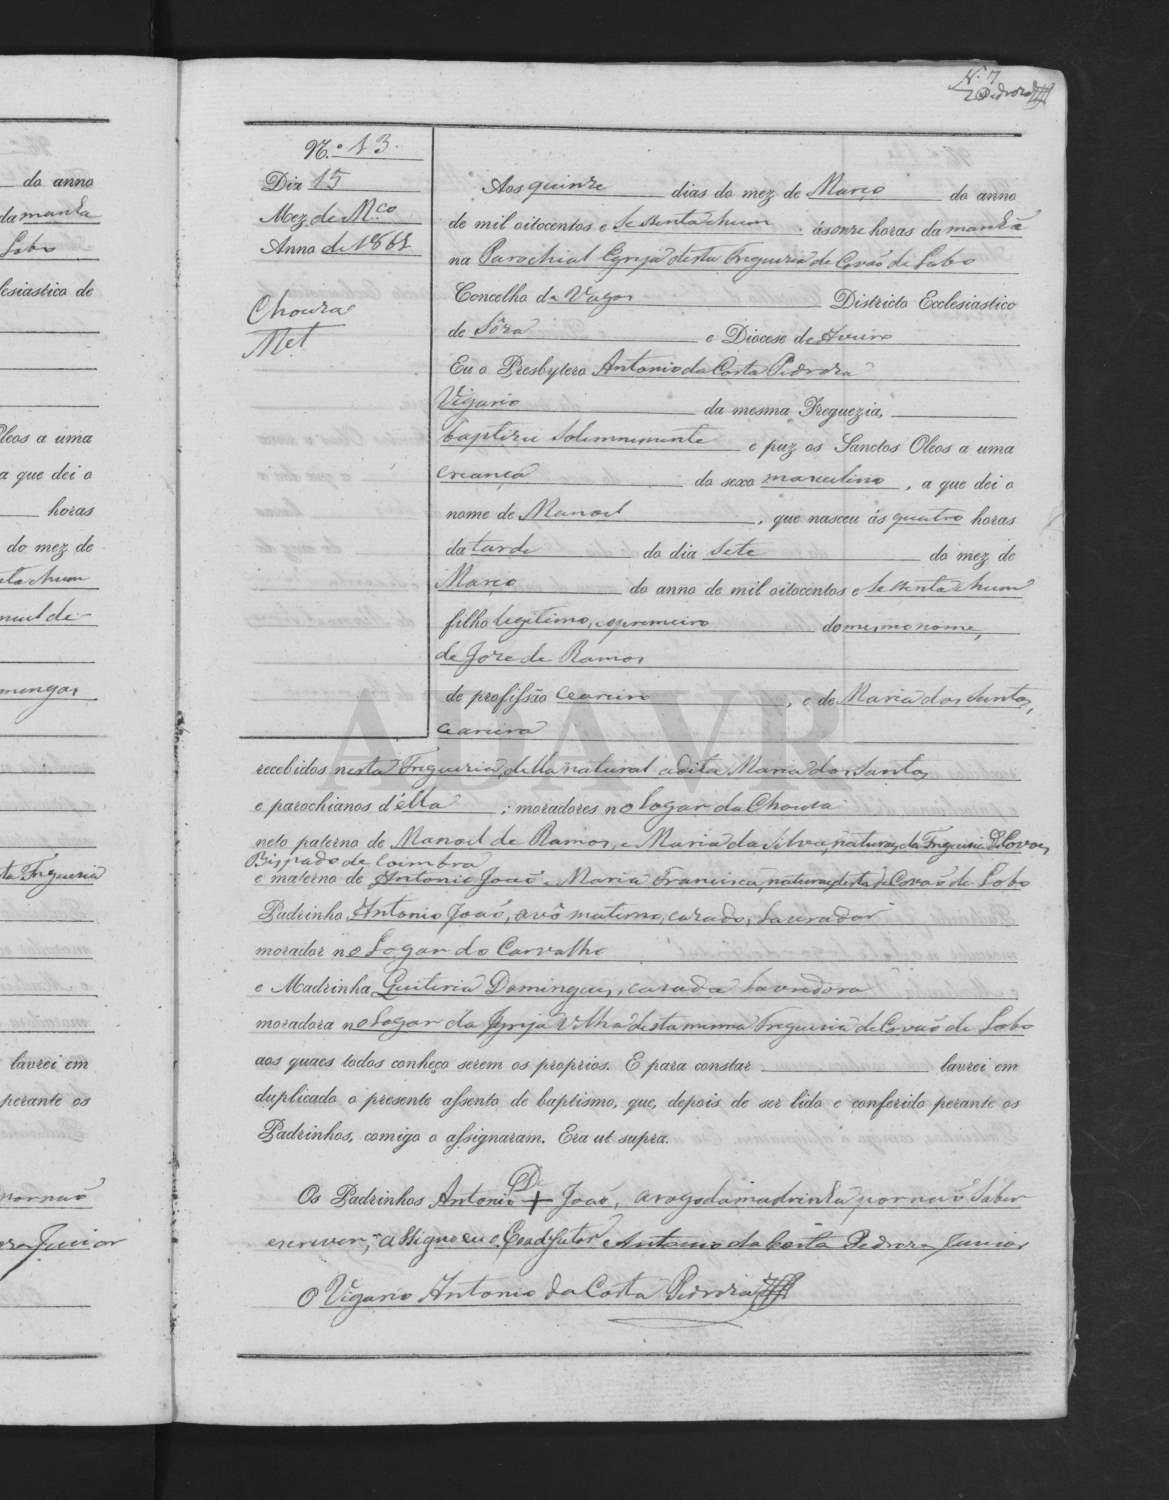 N. 7
Pedroza
do anno
da manhã
Lobo
lesiastico de
Oleos a uma
a que dei o
horas
do mez de
nta e hum
noel de
mingas
ta Freguezia
lavrei em
perante os
por não
Junior
N.º 13.
Dia 15
Mez de M.ço
Anno de 1861
Choura
Met
Aos quinze dias do mez de Março do anno
de mil oitocentos e Sessenta e hum ás onze horas da manhã
na Parochial Egreja desta Freguezia de Covão de Lobo
Concelho de Vagos Districto Ecclesiastico
de Sôza e Diocese de Aveiro
Eu o Presbytero Antonio da Costa Pedroza
Vigario da mesma Freguezia,
baptizei Solemnemente e puz os Sanctos Oleos a uma
creança do sexo masculino, a que dei o
nome de Manoel, que nasceu ás quatro horas
da tarde do dia Sete do mez de
Março do anno de mil oitocentos e Sessenta e hum
filho legitimo, e o premeiro do mesmo nome,
de Joze de Ramos
de profissão ceareiro, e de Maria dos Santos,
ceareira
recebidos nesta Freguezia, della natural a dita Maria dos Santos
e parochianos d'ella; moradores no Logar da Choura
neto paterno de Manoel de Ramos, e Maria da Silva, naturaes da Freguezia de Covoes,
Bispado de Coimbra
e materno de Antonio João e Maria Francisca, naturaes desta de Covão de Lobo
Padrinho Antonio João, avô materno, cazado, Lavrador
morador no Logar do Carvalho
e Madrinha Quiteria Domingues, cazada Lavradora
moradora no Logar da Igreja Velha desta mesma Freguezia de Covão de Lobo
aos quaes todos conheço serem os proprios. E para constar lavrei em
duplicado o presente assento de baptismo, que, depois de ser lido e conferido perante os
Padrinhos, comigo o assignaram. Era ut supra.
De
Os Padrinhos Antonio + João, a rogo da madrinha, por não Saber
escrever, assigno eu o Coadjutor Antonio da Costa Pedroza Junior
O Vigario Antonio da Costa Pedroza
ADAVR